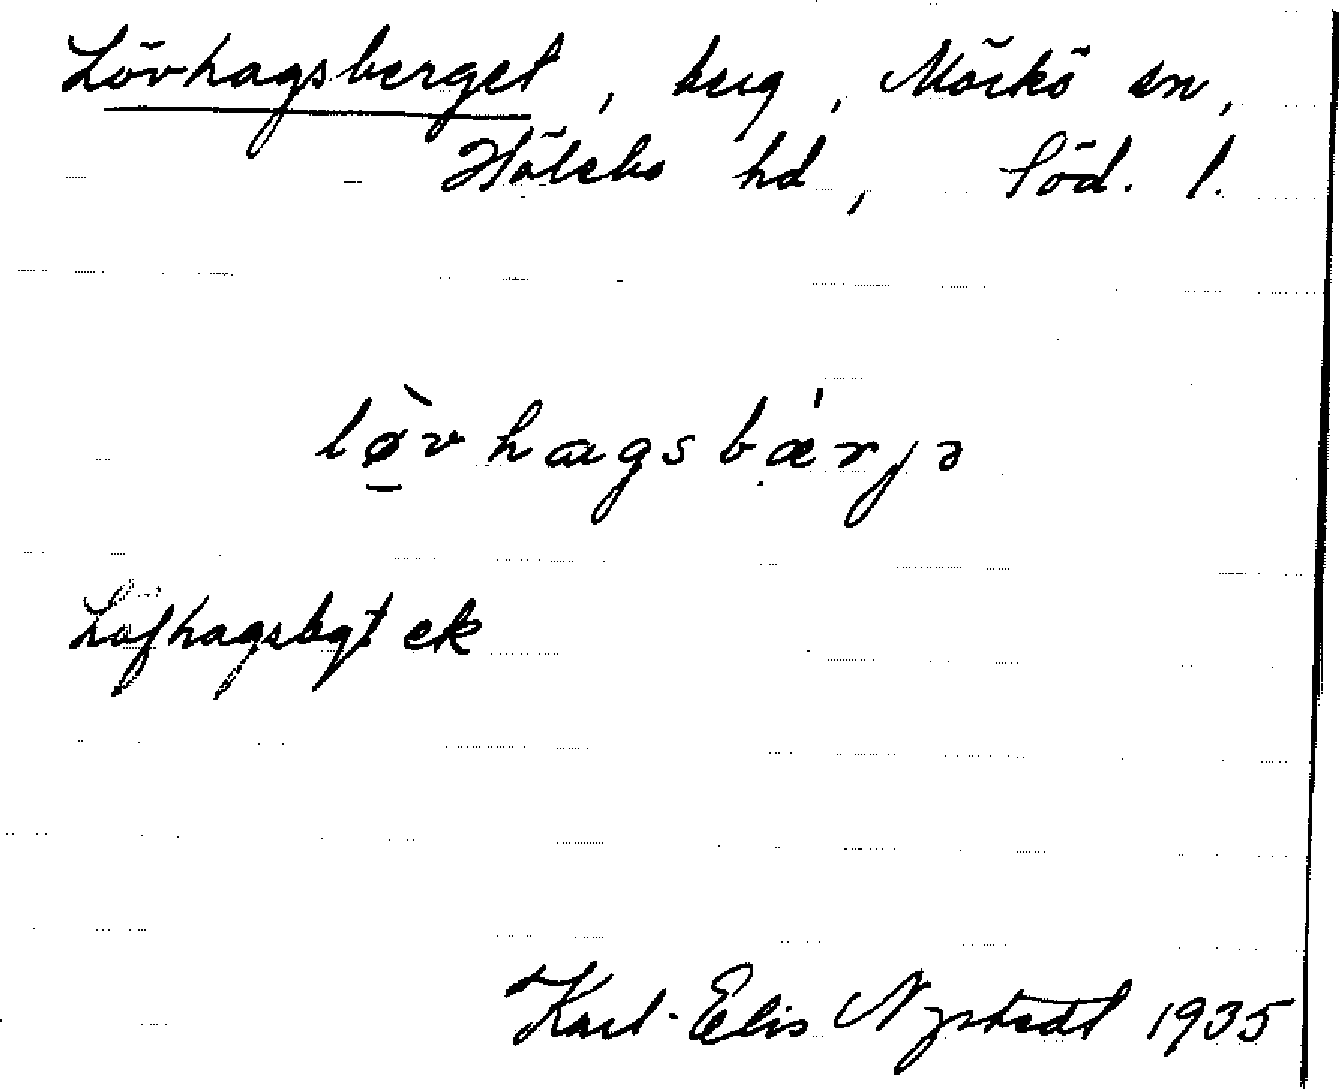 Lövhagsberget, berg, Mörkö sn,
Hölebo hd, Söd. l.
lø̀vhagsbæ'rjə
Löfhagsbgt ek
Karl-Elis Nystedt 1935